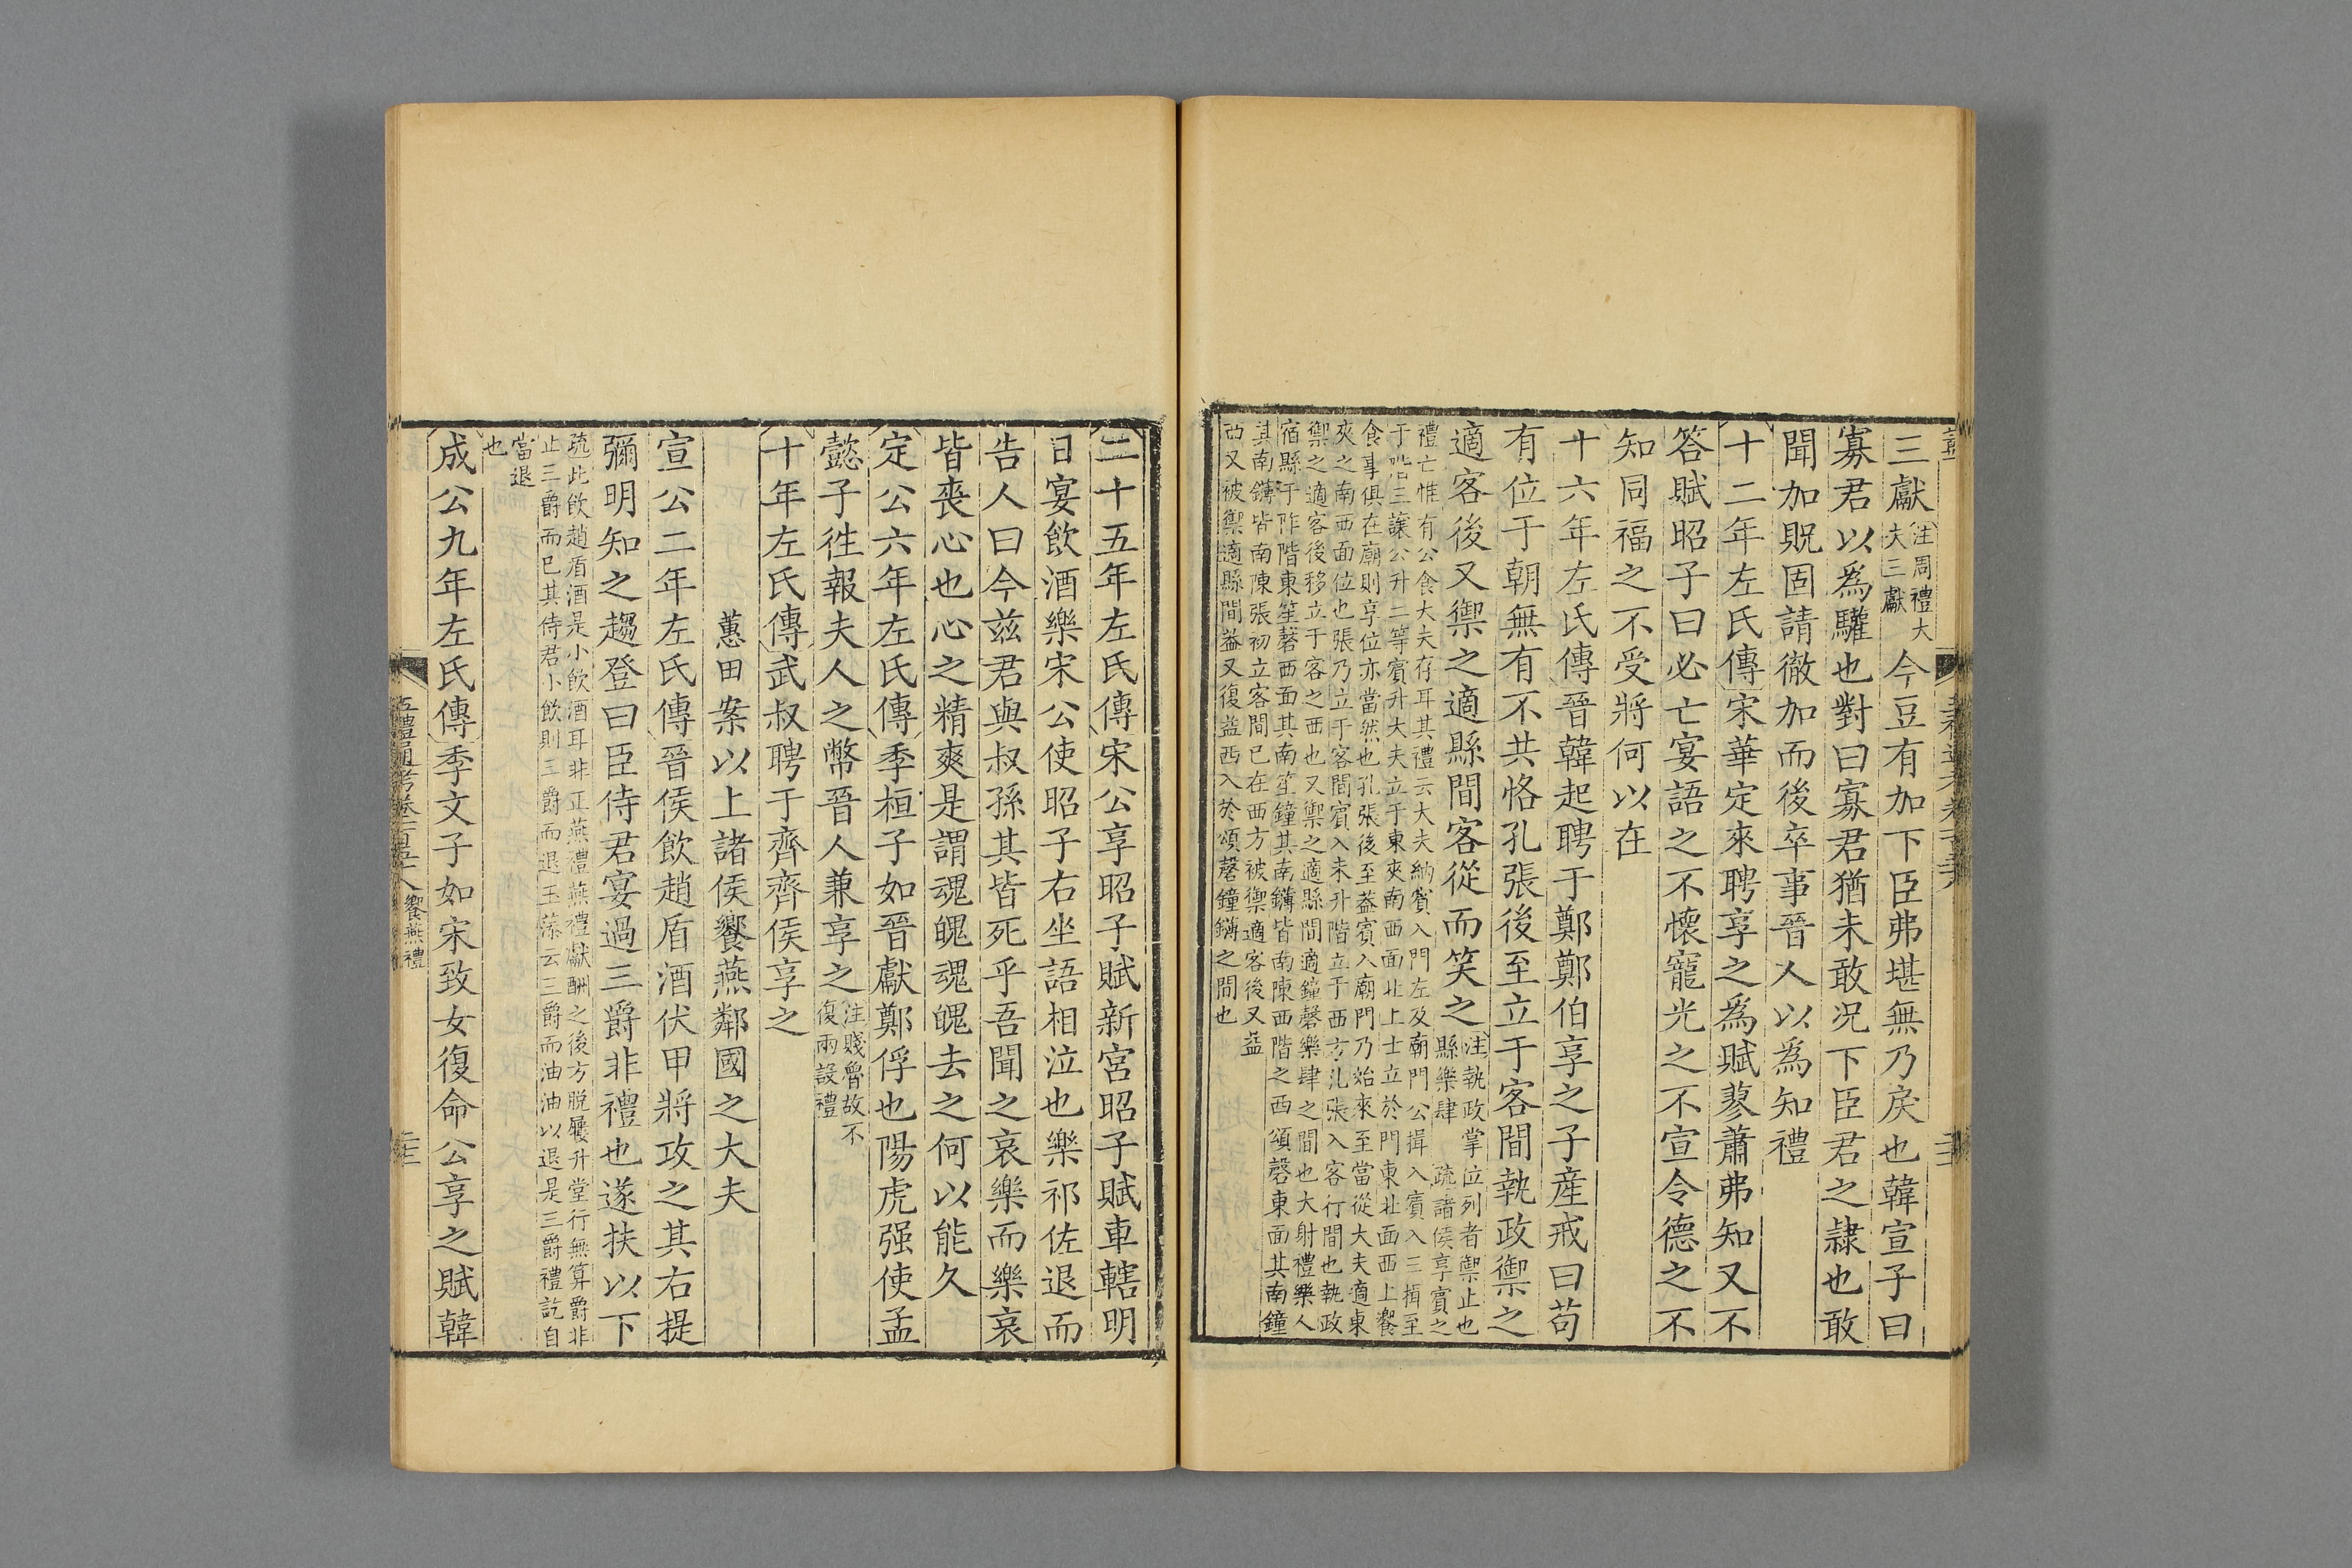 三獻
注周禮大
夫三獻
今豆有加下臣弗堪無乃戾也韓宣子曰
寡君以爲驩也對曰寡君猶未敢况下臣君之隸也敢
聞加貺固請徹加而後卒事晉人以爲知禮
十二年左氏傳宋華定來聘享之爲賦蓼蕭弗知又不
答賦昭子曰必亡宴語之不懷寵光之不宣令德之不
知同福之不受將何以在
十六年左氏傳晉韓起聘于鄭鄭伯享之子産戒曰苟
有位于朝無有不共恪孔張後至立于客間執政禦之
適客後又禦之適縣間客從而笑之
注執政掌位列者禦止也
縣樂肆　疏諸侯享賓之
禮亡惟有公食大夫存耳其禮云大夫納賓入門左及廟門公揖入賓入三揖至
于階三讓公升二等賓升大夫立于東夾南西面北上士立於門東北面西上饗
食事俱在廟則享位亦當然也孔張後至葢賓入廟門乃始來至當從大夫適東
夾之南西面位也張乃立于客間賓入未升階立于西方孔張入客行間也執政
禦之適客後移立于客之西也又禦之適縣間適鐘磬樂肆之間也大射禮樂人
宿縣于阼階東笙磬西面其南笙鐘其南鑮皆南陳西階之西頌磬東面其南鐘
其南鑮皆南陳張初立客間已在西方被禦適客後又益
西又被禦適縣間益又復益西入於頌磬鐘鑮之間也
二十五年左氏傳宋公享昭子賦新宮昭子賦車轄明
日宴飲酒樂宋公使昭子右坐語相泣也樂祁佐退而
告人曰今兹君與叔孫其皆死乎吾聞之哀樂而樂哀
皆喪心也心之精爽是謂魂魄魂魄去之何以能久
定公六年左氏傳季桓子如晉獻鄭俘也陽虎强使孟
懿子徃報夫人之幣晉人兼享之
注賤魯故不
復兩設禮
十年左氏傳武叔聘于齊齊侯享之
蕙田案以上諸侯饗燕鄰國之大夫
宣公二年左氏傳晉侯飲趙盾酒伏甲將攻之其右提
彌明知之趨登曰臣侍君宴過三爵非禮也遂扶以下
疏此飲趙盾酒是小飲酒耳非正燕禮燕禮獻酬之後方脫屨升堂行無算爵非
止三爵而已其侍君小飲則三爵而退玉藻云三爵而油油以退是三爵禮訖自
當退
也
成公九年左氏傳季文子如宋致女復命公享之賦韓
五禮通考卷一百五十八
饗燕禮